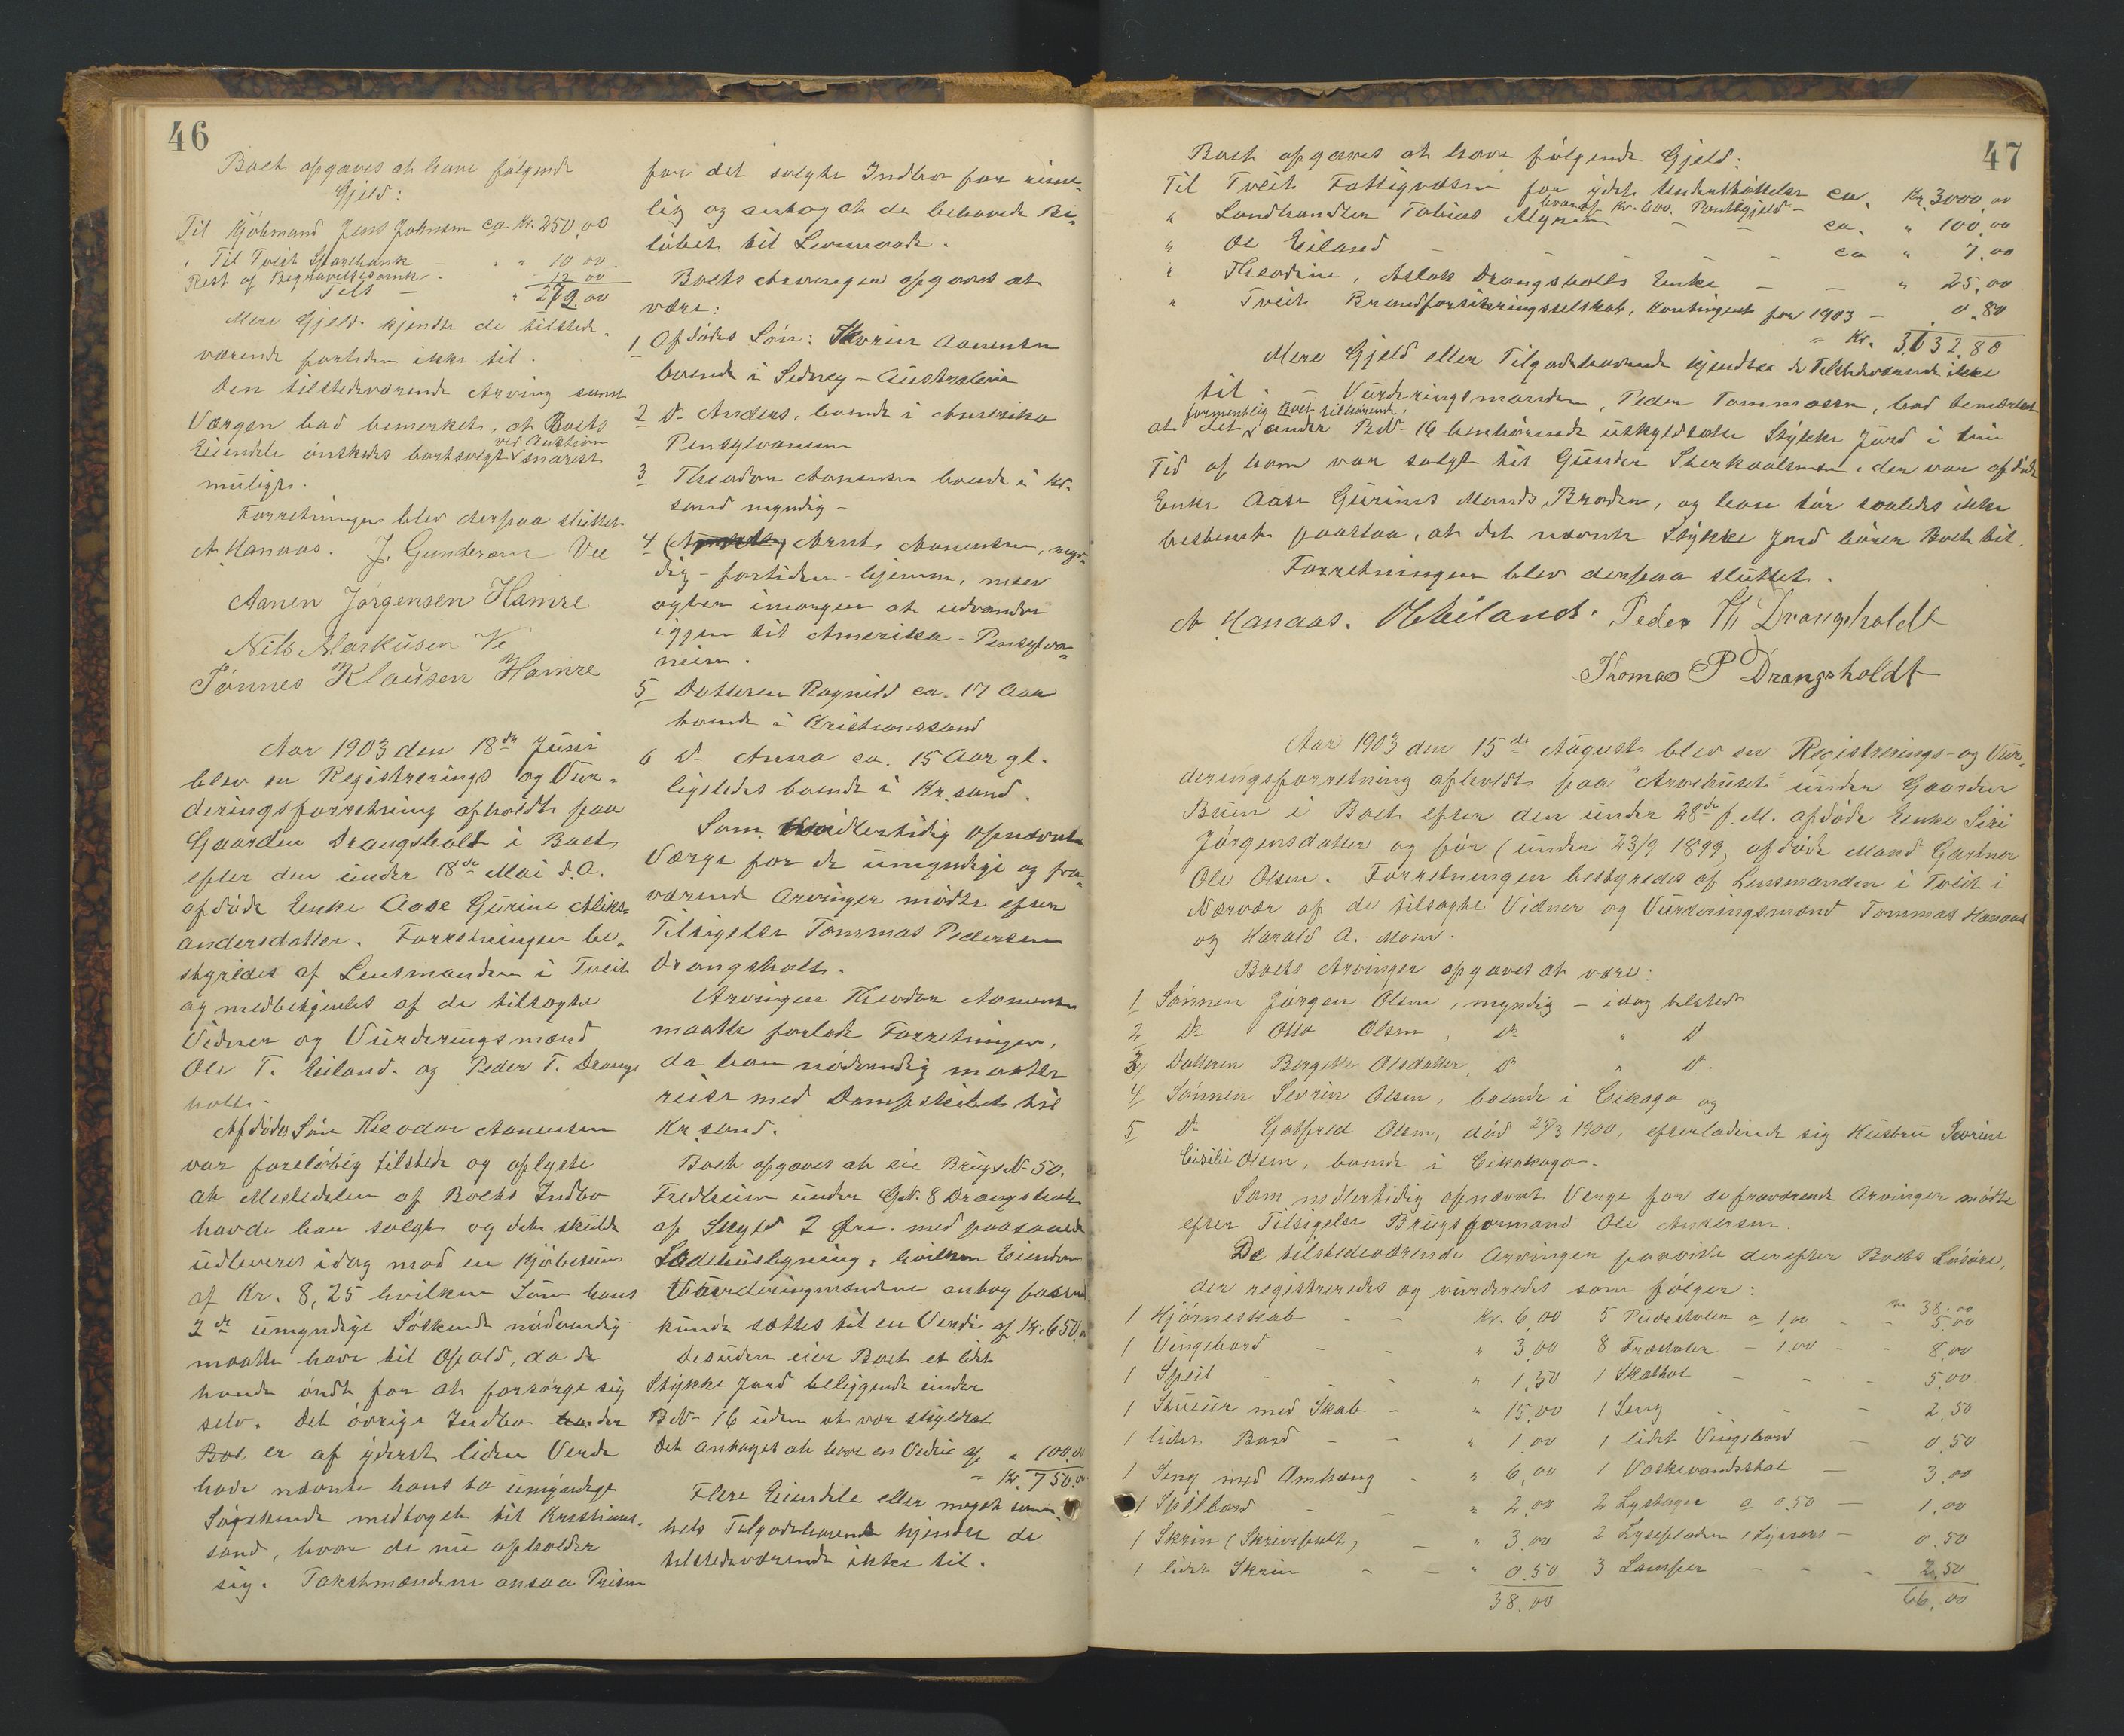 46
Boet opgaves at have følgende
Gjeld:
Til Kjøbmand Jens Johnsen ca. Kr. 250,00
" Til Tveit Sparebank - " " 10.00
Rest af Begravelsesomk. - 12.00
Tils - " 272.00
Mere Gjeld kjendte de tilstede-
værende fortiden ikke til.
Den tilstedeværende Arving samt
Værgen bad bemerket, at Boets
ved Auktion
Eiendele ønskedes bortsolgt snarest
muligt.
Forretningen blev derpaa sluttet
A. Hanaas. J. Gundersen Vee
Aanen Jørgensen Hamre
Nils Markusen Ve
Tønnes Klausen Hamre
Aar 1903 den 18de Juni
blev en Registrerings og Vur-
deringsforretning afholdt paa
Gaarden Drangsholt i Boet
efter den under 18de Mai d.A.
afdøde Enke Aase Gurine Aleks-
andersdatter. Forretningen be-
styredes af Lensmanden i Tveit
og medbetjentes af de tilsagte
Vidner og Vurderingsmænd
Ole T. Eiland. og Peder T. Drangs
holt.
Afdødes Søn Theodor Aanensen
var foreløbig tilstede og oplyste
at Mestedelen af Boets Indbo
havde han solgt og dette skulde
udleveres idag mod en Kjøbesum
af Kr. 8,25 hvilken Sum hans
2de umyndige Søskende nødvendig
maatte have til Ophold, da de
havde ondt for at forsørge sig
selv. Det øvrige Indbo
Boet er af yderst liden Verde
havde nævnte hans to umyndige
Søskende medtaget til Kristians-
sand, hvor de nu opholder
sig. Takstmændene ansaa Prisen
for det solgte Indbo for rime-
lig og antog at de behøvede Be-
løbet til Livsunderhold.
Boets Arvinger opgaves at
være:
1 Afdødes Søn: Severin Aanensen
boende i Sidney - Australien
2 Do Anders, boende i Amerika
Pensylvanien
3 Theodor Aanensen boende i Kr.-
sand myndig -
4 Arnt Aanensen, myn-
dig - fortiden hjemme, men
agter imorgen at udvandre
igjen til Amerika - Pensylva-
nien.
5 Datteren Ragnild ca. 17 Aar
boende i Kristianssand
6 Do Anna ca. 15 Aar gl.
ligeledes boende i Kr.sand.
Som midlertidig opnævnt
Værge for de umyndige og fra-
værende Arvinger mødte efter
Tilsigelse Tommas Pedersen
Drangsholt.
Arvingen Theodor Aanensen
maatte forlade Forretningen,
da han nødvendig maatte
reise med Dampskibet til
Kr.sand.
Boet opgaves at eie Brugs No 50.
Fredheim under GNo. 8 Drangsholt
af Skyld 2 Øre. med paastaaende
Ladehusbygning, hvilken Eiendom
Vurderingsmændene antog passende
kunde sættes til en Verdi af Kr. 650,00
Desuden eier Boet et lidet
Stykke Jord beliggende under
BNo 16 uden at var skyldsat
Det antages at have en Verdie af " 100,00
- Kr. 750,00
Flere Eiendele eller noget som
helst Tilgodehavende kjender de
tilstedeværende ikke til.
47
Boet opgaves at have følgende Gjeld:
Til Tveit Fattigvæsen for ydet Understøttelse ca. Kr. 3000,00
hvoraf Kr. 600. Pantegjeld -
" Landhandler Tobias - - ca. " 100,00
" Ole Eiland - - - ca " 7,00
" Theodine, Aslak Drangsholts Enke - - " 25,00
" Tveit Brandforsikringsselskab, Kontingent for 1903 - 0,80
" Kr. 3132,80
Mere Gjeld eller Tilgodehavende kjendtes de Tilstedeværende ikke
til. - Vurderingsmanden, Peder Tommassen, bad bemærket
formentlig Boet tilhørende,
at det under BNo 16 henhørende uskyldsatte Stykke Jord i sin
Tid af ham var solgt til Gunder Sterkodtsen, der var afdøde
Enke Aase Gurines Mands Broder, og han tør saaledes ikke
bestemt paastaa, at det nævnte Stykke Jord hører Boet til.
Forretningen blev derpaa sluttet.
A. Hanaas. O Eiland. Peder Th Drangsholdt
Thomas P Drangsholdt
Aar 1903 den 15de August blev en Registrerings- og Vur-
deringsforretning afholdt paa "Arvehuset" under Gaarden
Buen i Boet efter den under 28de f.M. afdøde Enke Siri
Jørgensdatter og før (under 23/9 1899) afdøde Mand Gartner
Ole Olsen. Forretningen bestyredes af Lensmanden i Tveit i
Nærvær af de tilsagte Vidner og Vurderingsmænd Tommas Hanaas
og Harald A. Moen.
Boets Arvinger opgaves at være:
1 Sønnen Jørgen Olsen, myndig - idag tilstede
2 Do Otto Olsen, Do " Do
3 Datteren Bergette Olsdatter, Do " Do.
4 Sønnen Sevrin Olsen, boende i Cikago og
5 Do Gotfred Olsen, død 25/3 1900, efterladende sig Hustru Sevrine
Cicilie Olsen, boende i Cikakago.
Som midlertidig opnævnt Verge for de fraværende Arvinger mødte
efter Tilsigelse Brugsformand Ole Andersen.
De tilstedeværende Arvinger paaviste derefter Boets Løsøre,
der registreredes og vurderedes som følger:
1 Hjørneskab - - Kr. 6,00
1 Vingebord - - " 3,00
1 Speil - - " 1,50
1 Stueur med Skab - " 15,00
1 lidet Bord - - " 1,00
1 Seng med Omhæng - " 6,00
1 Spilbord - - " 2,00
1 Skrin (Skrivepult) - " 3,00
1 lidet Skrin - - " 0,50
38.00
38.00
5 Pindestoler a 1,00 - - 5.00
8 Træstoler - 1,00 - - 8,00
1 Skatthol - - - 5,00
1 Seng - - - 2,50
1 lidet Vingebord - 0,50
1 Vaskevandsstol - 3,00
2 Lystager a 0,50 - 1,00
2 Lyseplader 1 Lysesaks - 0,50
3 Lamper - - - 2,50
66,00